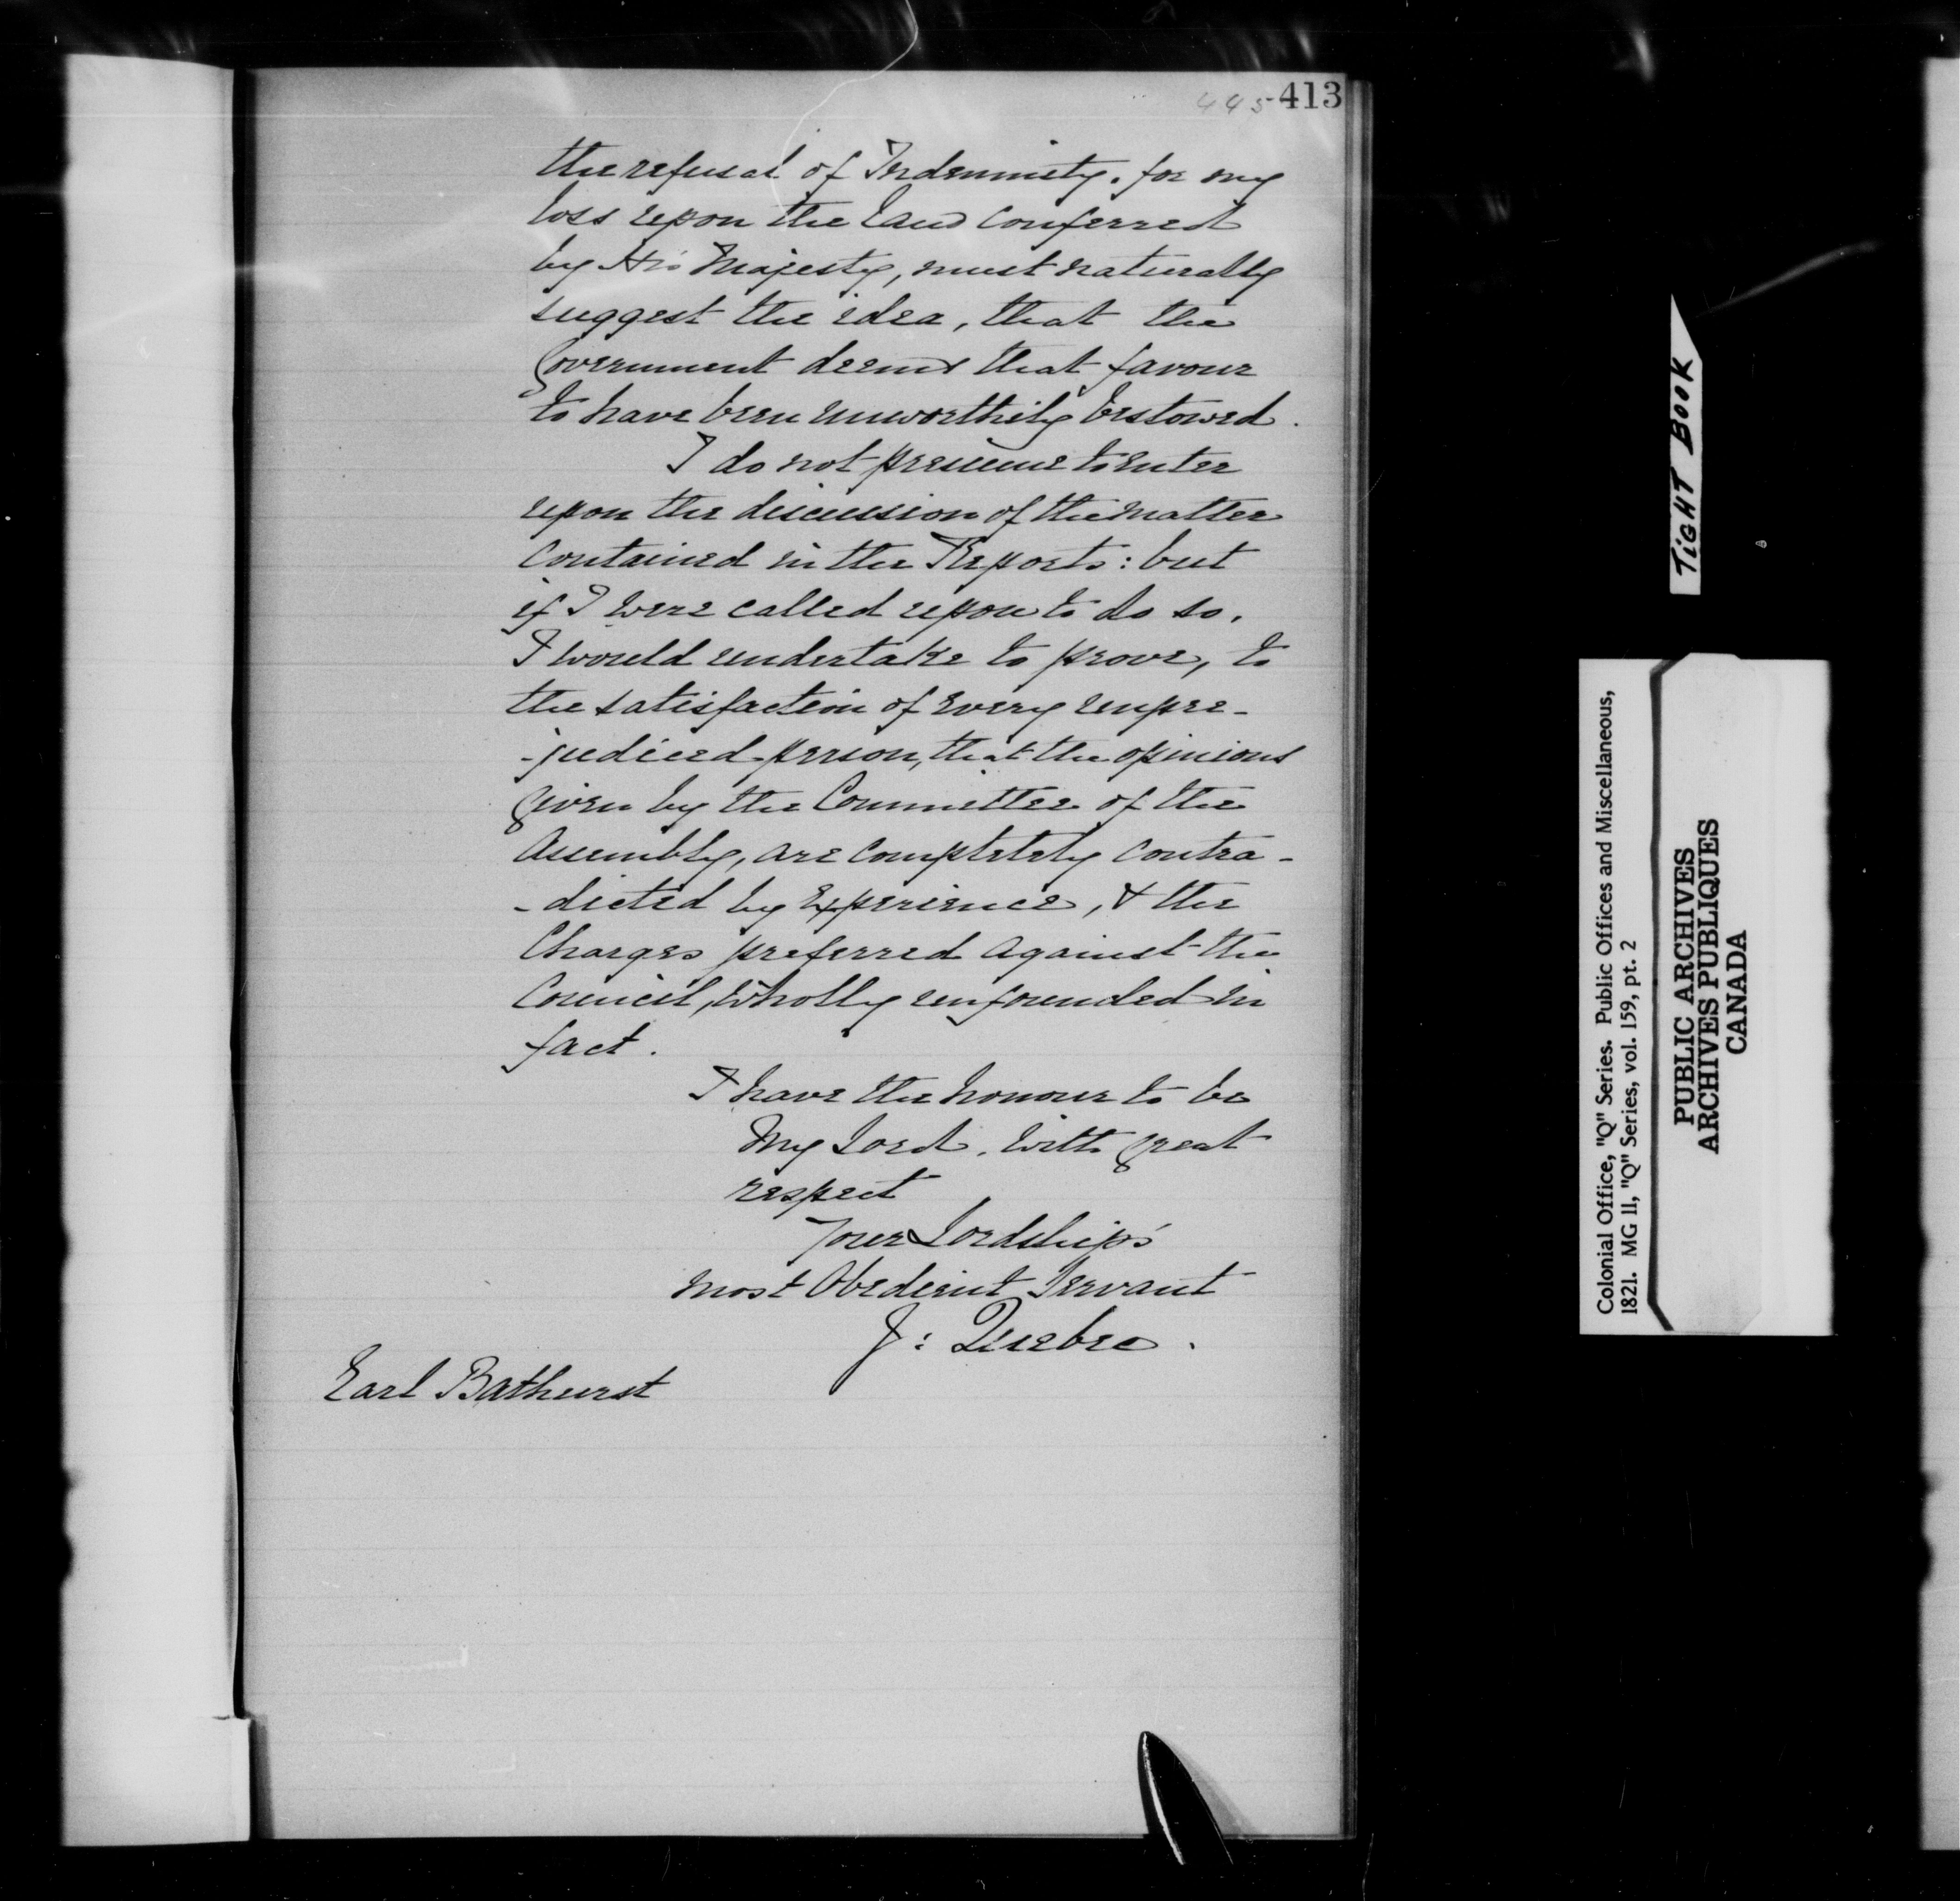 445-413
the refusal of Indemnity, for my
loss upon the land conferred
by His Majesty, must naturally
suggest the idea, that the
Government deems that favour
to have been unworthily bestowed.
I do not presume to enter
upon the discussion of the matter
contained in the Reports: but
if I were called upon to do so,
I would undertake to prove, to
the satisfaction of every unpre-
-judiced person, that the opinions
given by the Committee of the
Assembly, are completely contra-
-dicted by Experience, & the
Charges preferred against the
Council, wholly unfounded in
fact.
I have the honour to be
My Lord, with great
respect
Your Lordship's
most Obedient Servant
J: Quebec.
Earl Bathurst
TIGHT BOOK
Colonial Office, "Q" Series. Public Offices and Miscellaneous,
1821. MG 11, "Q" Series, vol. 159, pt. 2
PUBLIC ARCHIVES
ARCHIVES PUBLIQUES
CANADA